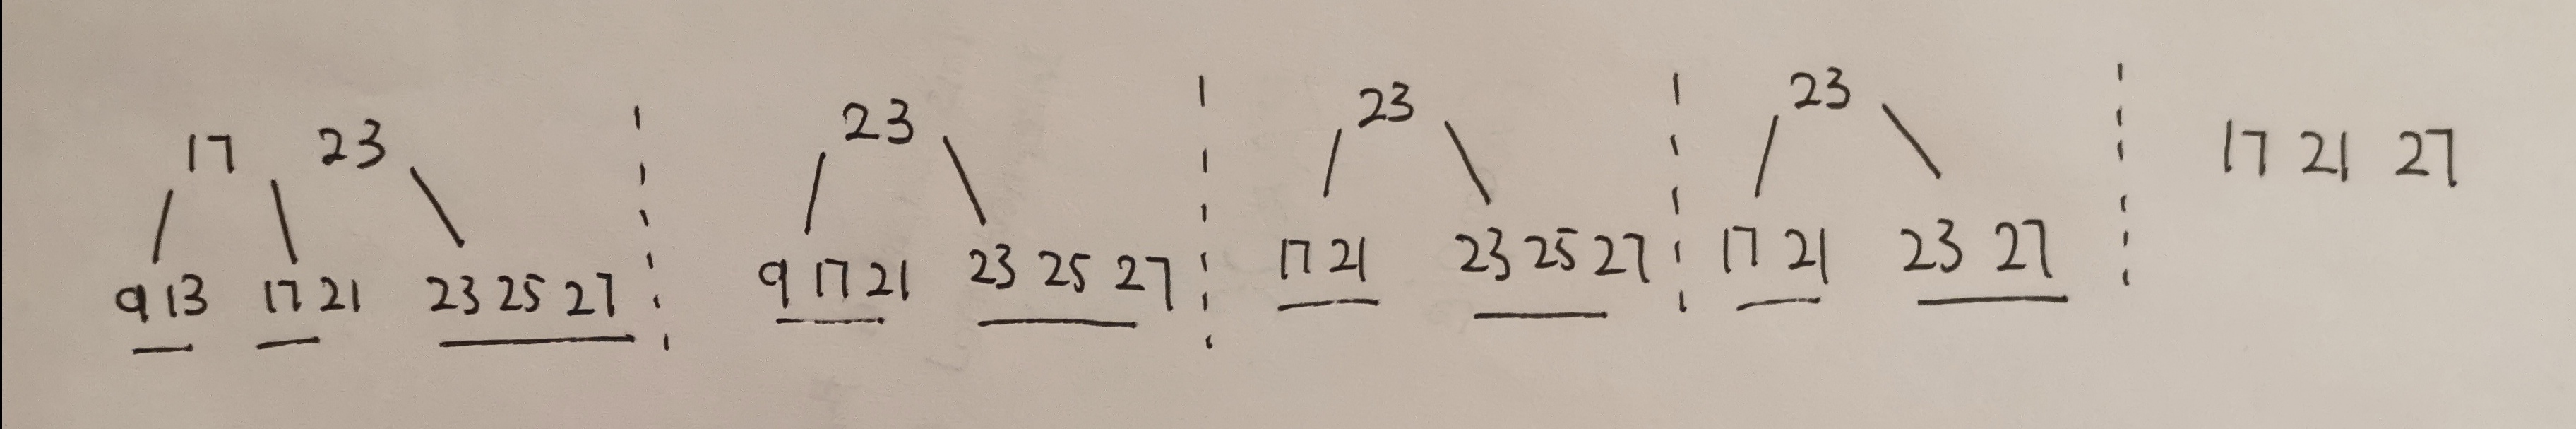 17 23
9 13 17 21 23 25 27
23
9 17 21 23 25 27
23
17 21 23 25 27
23
17 21 23 27
17 21 27